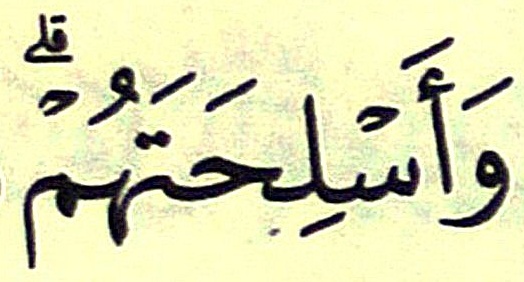 وَأَسْلِحَتَهُمْۗ